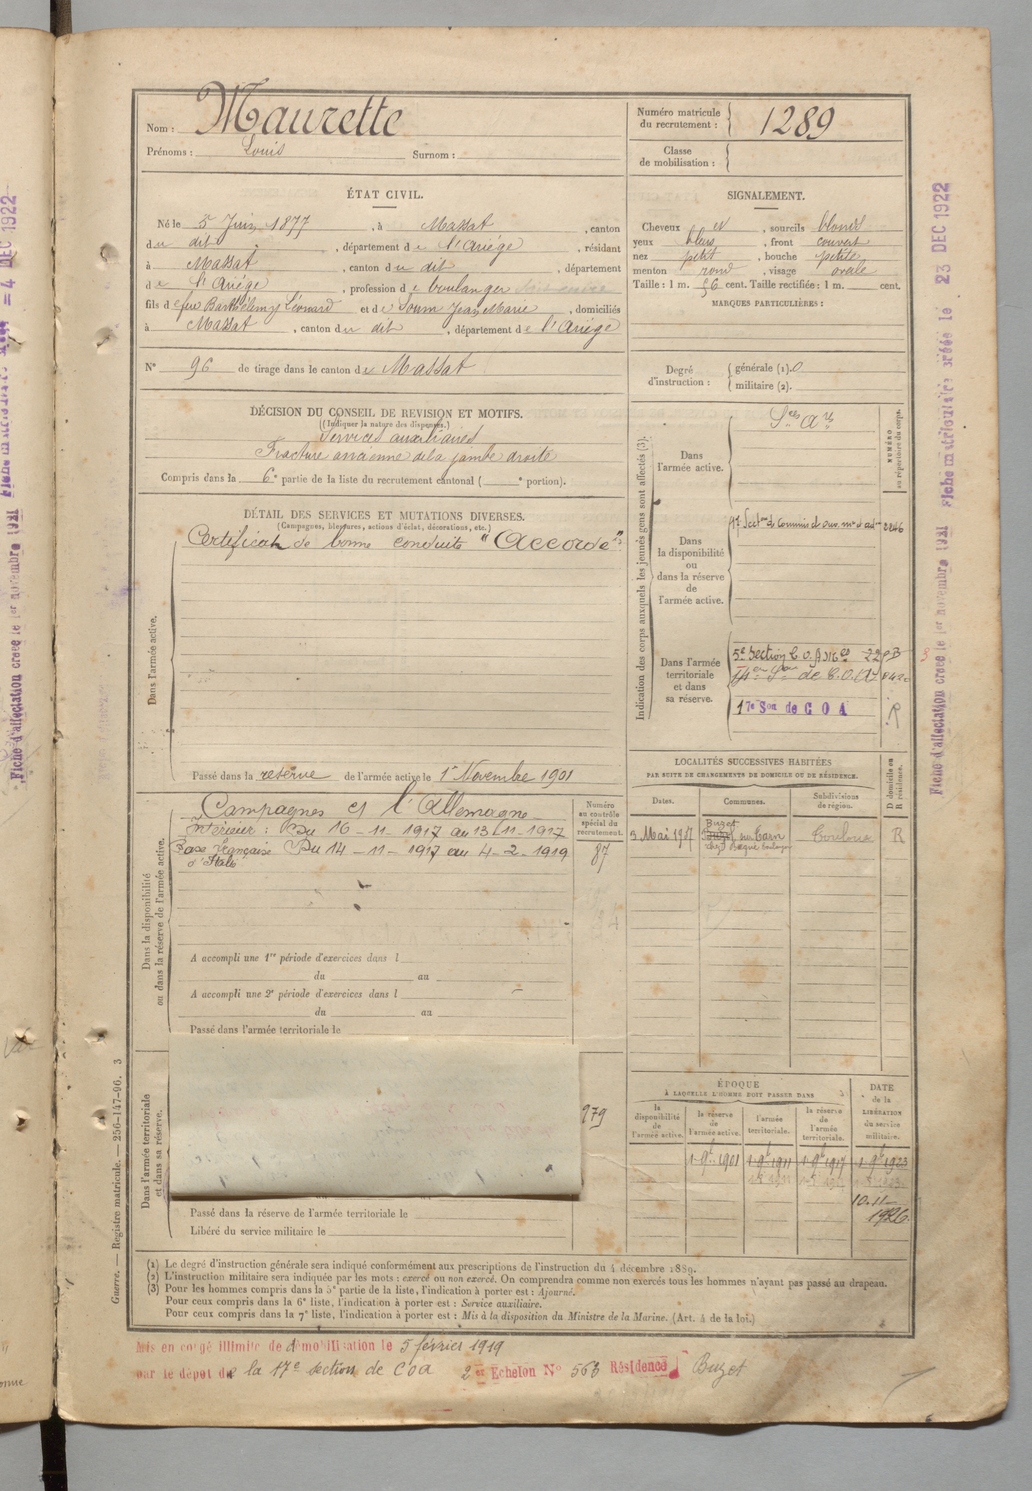 Nom : Maurette
Prénoms : Louis Surnom :
Numéro matricule du recrutement : 1289
Classe de mobilisation :
ÉTAT CIVIL.
Né le 5 Juin 1877, à Massat, canton
du dit, département de l'Ariége, résidant
à Massat, canton du dit, département
de l'Ariége, profession de boulanger
fils de feu Barthélemy Léonard et de Soum Jeanne Marie, domiciliés
à Massat, canton du dit, département de l'Ariége
N° 96 de tirage dans le canton de Massat
SIGNALEMENT.
Cheveux et, sourcils blonds
yeux bleus, front couvert
nez petit, bouche petite
menton rond, visage ovale
Taille : 1 m. 56 cent. Taille rectifiée : 1 m. cent.
MARQUES PARTICULIÈRES :
Degré d'instruction : générale (1). 0
militaire (2).
DÉCISION DU CONSEIL DE REVISION ET MOTIFS.
(Indiquer la nature des dispenses.)
Services auxiliaires
Fracture ancienne de la jambe droite
Compris dans la 6e partie de la liste du recrutement cantonal ( e portion).
DÉTAIL DES SERVICES ET MUTATIONS DIVERSES.
(Campagnes, blessures, actions d'éclat, décorations, etc.)
Certificat de bonne conduite "Accordé"
Dans l'armée active.
Passé dans la réserve de l'armée active le 1er Novembre 1901
Indication des corps auxquels les jeunes gens sont affectés (3).
NUMÉRO au répertoire du corps.
Dans l'armée active.
Dans la disponibilité ou dans la réserve de l'armée active.
2246
Dans l'armée territoriale et dans sa réserve.
17e Son de C O A
R
LOCALITÉS SUCCESSIVES HABITÉES
PAR SUITE DE CHANGEMENTS DE DOMICILE OU DE RÉSIDENCE.
D domicile ou R résidence.
Dates. Communes. Subdivisions de région.
3 Mai 1917 Buzet sur Tarn Toulouse R
Dans la disponibilité ou dans la réserve de l'armée active.
Numéro au contrôle spécial du recrutement.
87
Campagnes et l'Allemagne
Intérieur : Du 16-11-1917 au 13-11-1917
Base Française d'Italie Du 14-11-1917 au 4-2-1919
A accompli une 1re période d'exercices dans l
du au
A accompli une 2e période d'exercices dans l
du au
Passé dans l'armée territoriale le
979
Dans l'armée territoriale et dans sa réserve.
Passé dans la réserve de l'armée territoriale le
Libéré du service militaire le
ÉPOQUE
À LAQUELLE L'HOMME DOIT PASSER DANS
la disponibilité de l'armée active.
la réserve de l'armée active.
l'armée territoriale.
la réserve de l'armée territoriale.
DATE de la LIBÉRATION du service militaire.
1 9bre 1901 1 9b 1911 1 9b 1917 1 9b 1923
10-11-1926
(1) Le degré d'instruction générale sera indiqué conformément aux prescriptions de l'instruction du 4 décembre 1889.
(2) L'instruction militaire sera indiquée par les mots : exercé ou non exercé. On comprendra comme non exercés tous les hommes n'ayant pas passé au drapeau.
(3) Pour les hommes compris dans la 5e partie de la liste, l'indication à porter est : Ajourné.
Pour ceux compris dans la 6e liste, l'indication à porter est : Service auxiliaire.
Pour ceux compris dans la 7e liste, l'indication à porter est : Mis à la disposition du Ministre de la Marine. (Art. 4 de la loi.)
Guerre. — Registre matricule. — 256-147-96. 3
Mis en congé illimité de démobilisation le 5 février 1919
par le dépôt de la 17e section de COA 2 er Echelon N° 563 Résidence Buzet
Fiche d'affectation créée le 1er novembre 1921 Fiche matriculaire créée le 23 DEC 1922
Fiche d'affectation créée le 1er novembre 1921 Fiche matriculaire créée le = 4 DEC 1922